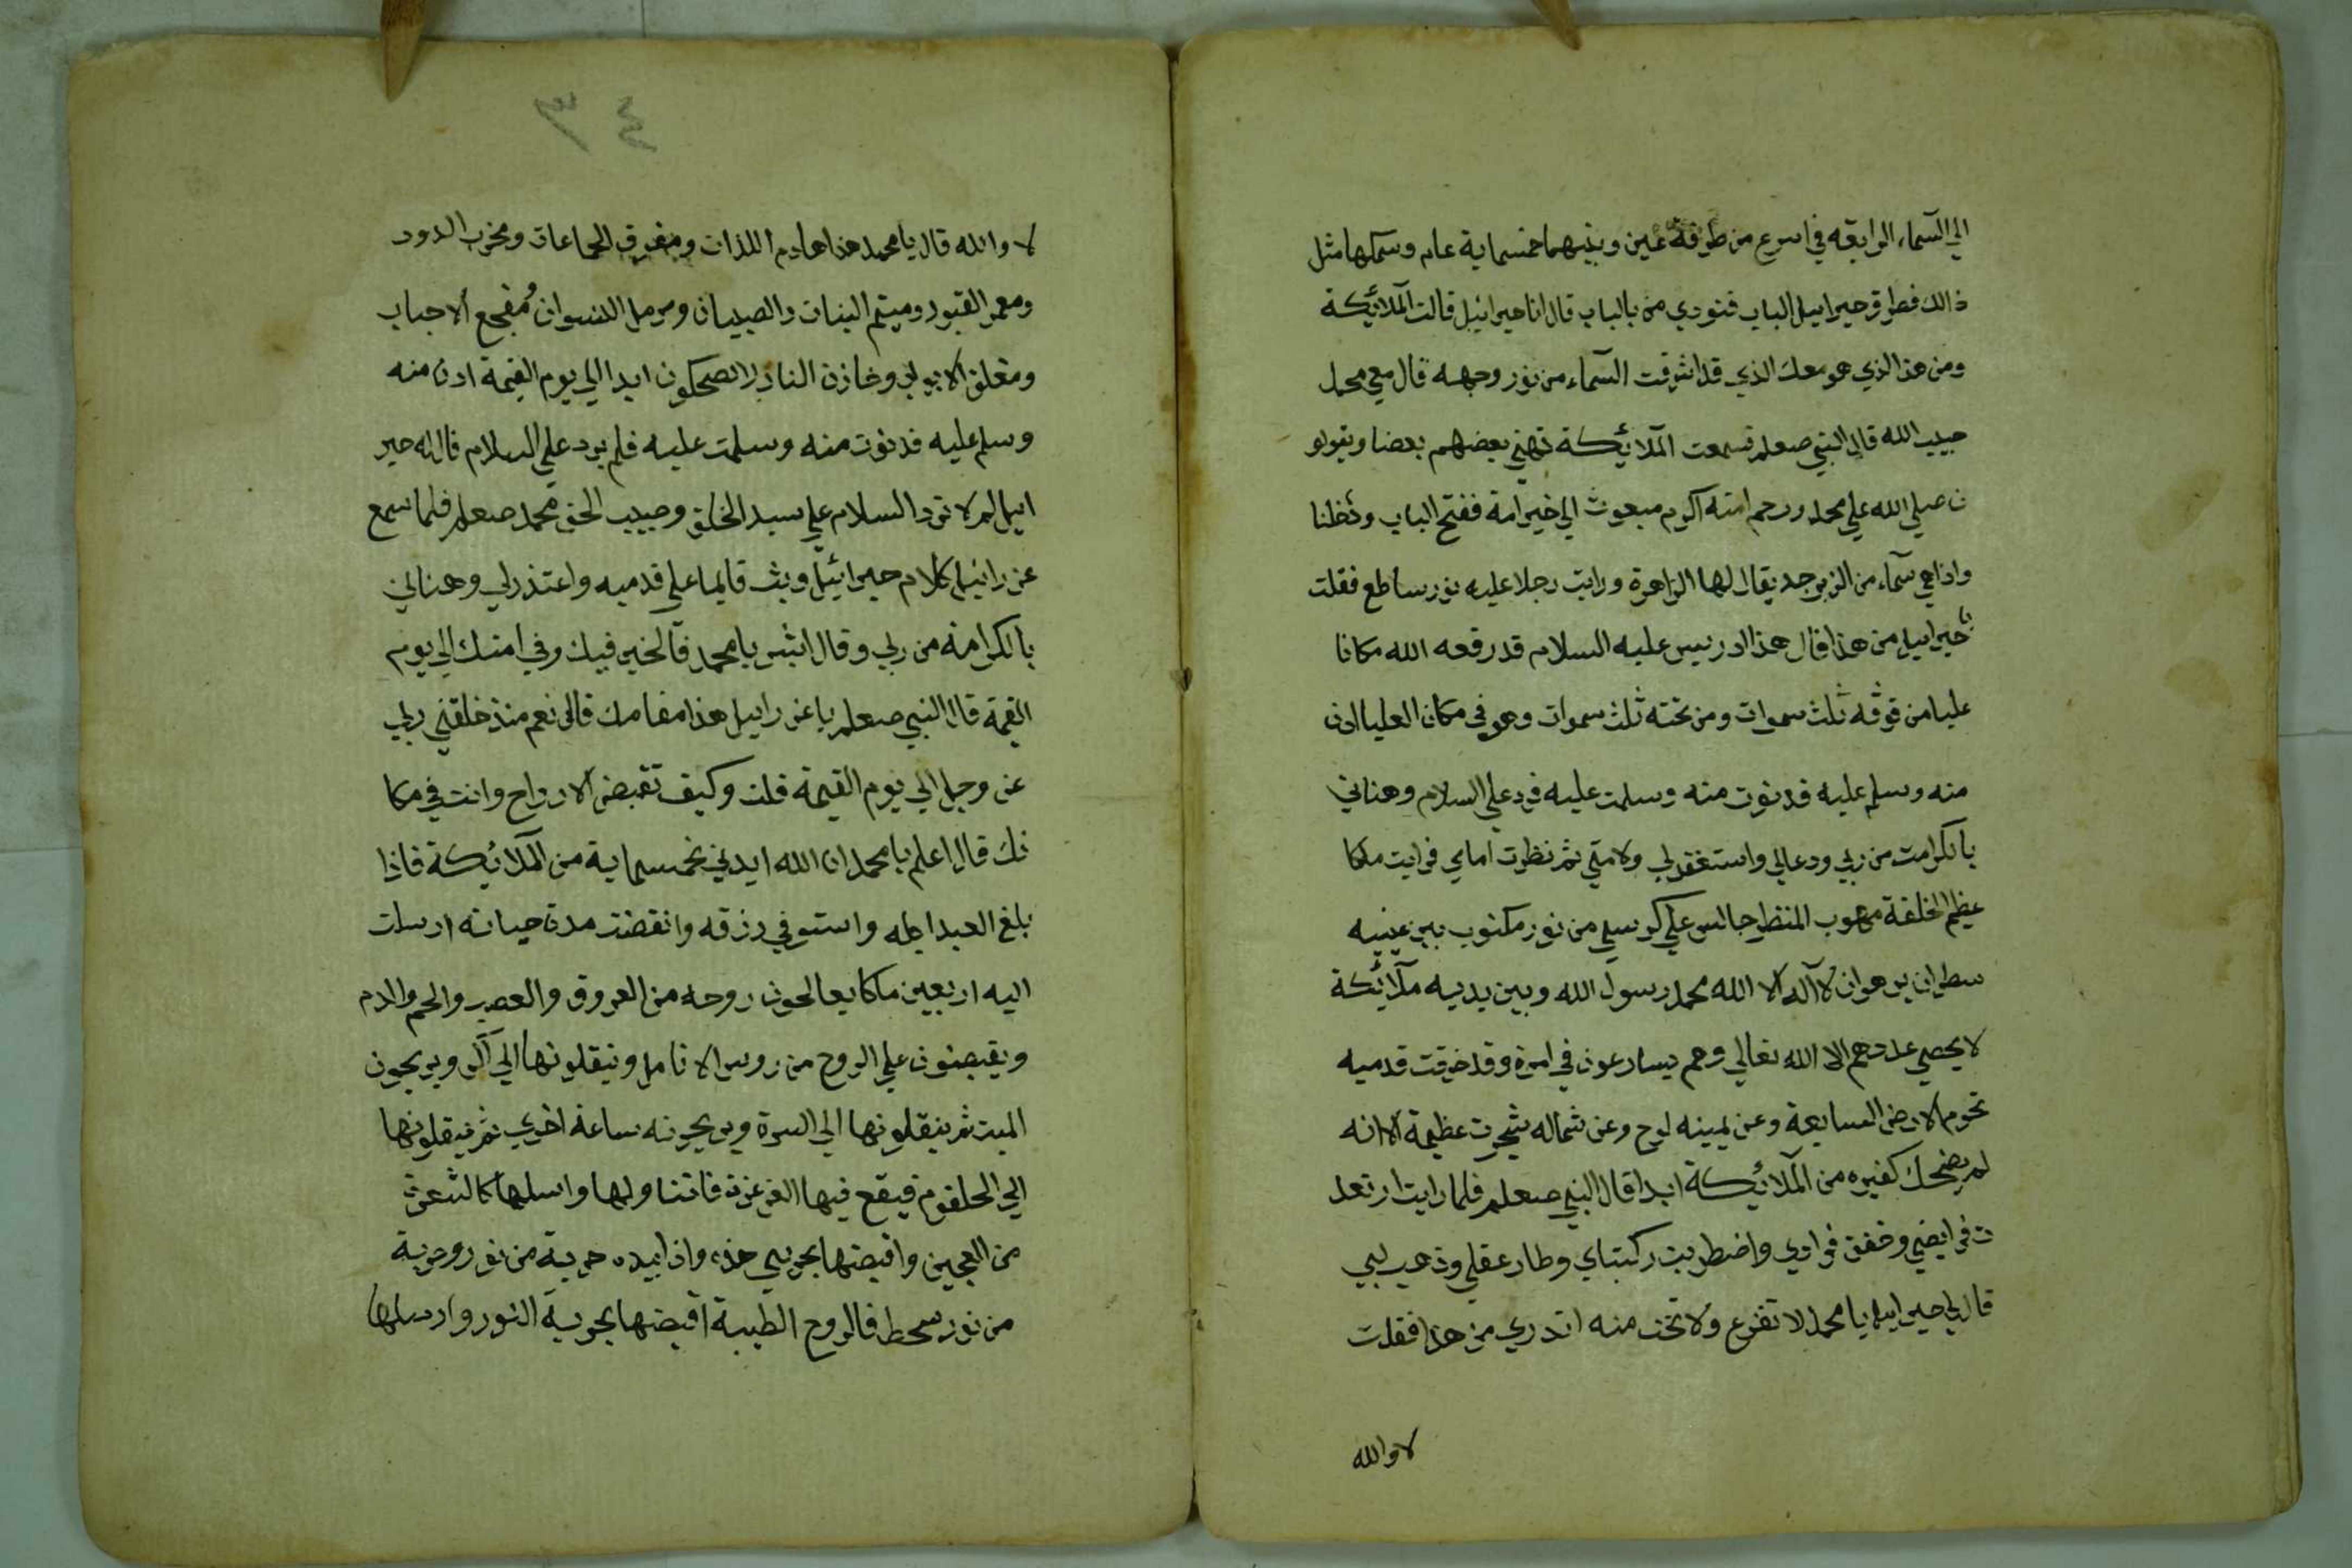 الي السماء الرابعه في اسرع من طرفة عين وبينهما خمسماية عام وسمكها مثل
ذالك فطرق جبرائيل الباب فنودي من بالباب قال انا جبرائيل قالت الملائكة
ومن هذا الذي هو معك الذي قد اشرقت السماء من نور وجهه قال معي محمد
حبيب الله قال النبي صعلم فسمعت الملائكة تهني بعضهم بعضا ويقولو
ن صلي الله علي محمد ورحم امته اكرم مبعوث الي خير امة ففتح الباب ودخلنا
واذا هي سماء من الزبرجد يقال لها الزاهرة ورايت رجلا عليه نور ساطع فقلت
يا جبراييل من هذا قال هذا ادريس عليه السلام قد رفعه الله مكانا
عليا من فوقه ثلث سموات ومن تحته ثلث سموات وهو في مكان العليا ادن
منه وسلم عليه فدنوت منه وسلمت عليه فرد علي السلام وهناني
بالكرامت من ربي ودعالي واستغفر لي ولامتي ثم نظرت امامي فرايت ملكا
عظيم الخلقة مهوب المنظر جالس علي كرسي من نور مكتوب بين عينيه
سطران يزهران لا اله الا الله محمد رسول الله وبين يديه ملائكة
لا يحصي عددهم الا الله تعالي وهم يسارعون في امره وقد خرقت قدميه
تخوم الارض السابعة وعن يمينه لوح وعن شماله شجرت عظيمة الا انه
لم يضحك كغيره من الملائكة ابدا قال النبي صعلم فلما رايت ارتعد
ت فرايضي وخفق فوادي واضطربت ركبتاي وطار عقلي وذهب لبي
قال لي جبراييل يا محمد لا تفزع ولا تخف منه اتدري من هذا فقلت
لا والله
٣٤
لا والله قال يا محمد هذا هادم اللذات ومفرق الجماعات ومخرب الدور
ومعمر القبور وميتم البنات والصبيان ومرمل النسوان ومفجع الاحباب
ومغلق الابواب وخازن النار لا يضحكون ابدا الي يوم القيمة ادن منه
وسلم عليه فدنوت منه وسلمت عليه فلم يرد علي السلام قال له جبر
ائيل لم لا ترد السلام علي سيد الخلق وحبيب الحق محمد صعلم فلما سمع
عزرائيل كلام جبرائيل وثب قايما علي قدميه واعتذر لي وهناني
بالكرامة من ربي وقال ابشر يا محمد فالخير فيك وفي امتك الي يوم
القيمة قال النبي صعلم يا عزراييل هذا مقامك قال نعم منذ خلقني ربي
عز وجل الي يوم القيمة قلت وكيف تقبض الارواح وانت في مكا
نك قال اعلم يا محمد ان الله ايدني بخمسماية من الملائكة فاذا
بلغ العبد اجله واستوفي رزقه وانقضت مدة حياته ارسلت
اليه اربعين ملكا يعالجون روحه من العروق والعصب والحم والدم
ويقبضون علي الروح من روس الانامل وينقلونها الي الر ويريحون
الميت ثم ينقلونها الي السرة ويريحونه ساعة اخري ثم ينقلونها
الي الحلقوم فيقع فيها الغرغرة فاتناولها واسلها كالشعرة
من العجين واقبضها بحربتي هذه واذا بيده حربة من نور وحربة
من نور سخط فالروح الطيبة اقبضها بحربة النور وارسلها